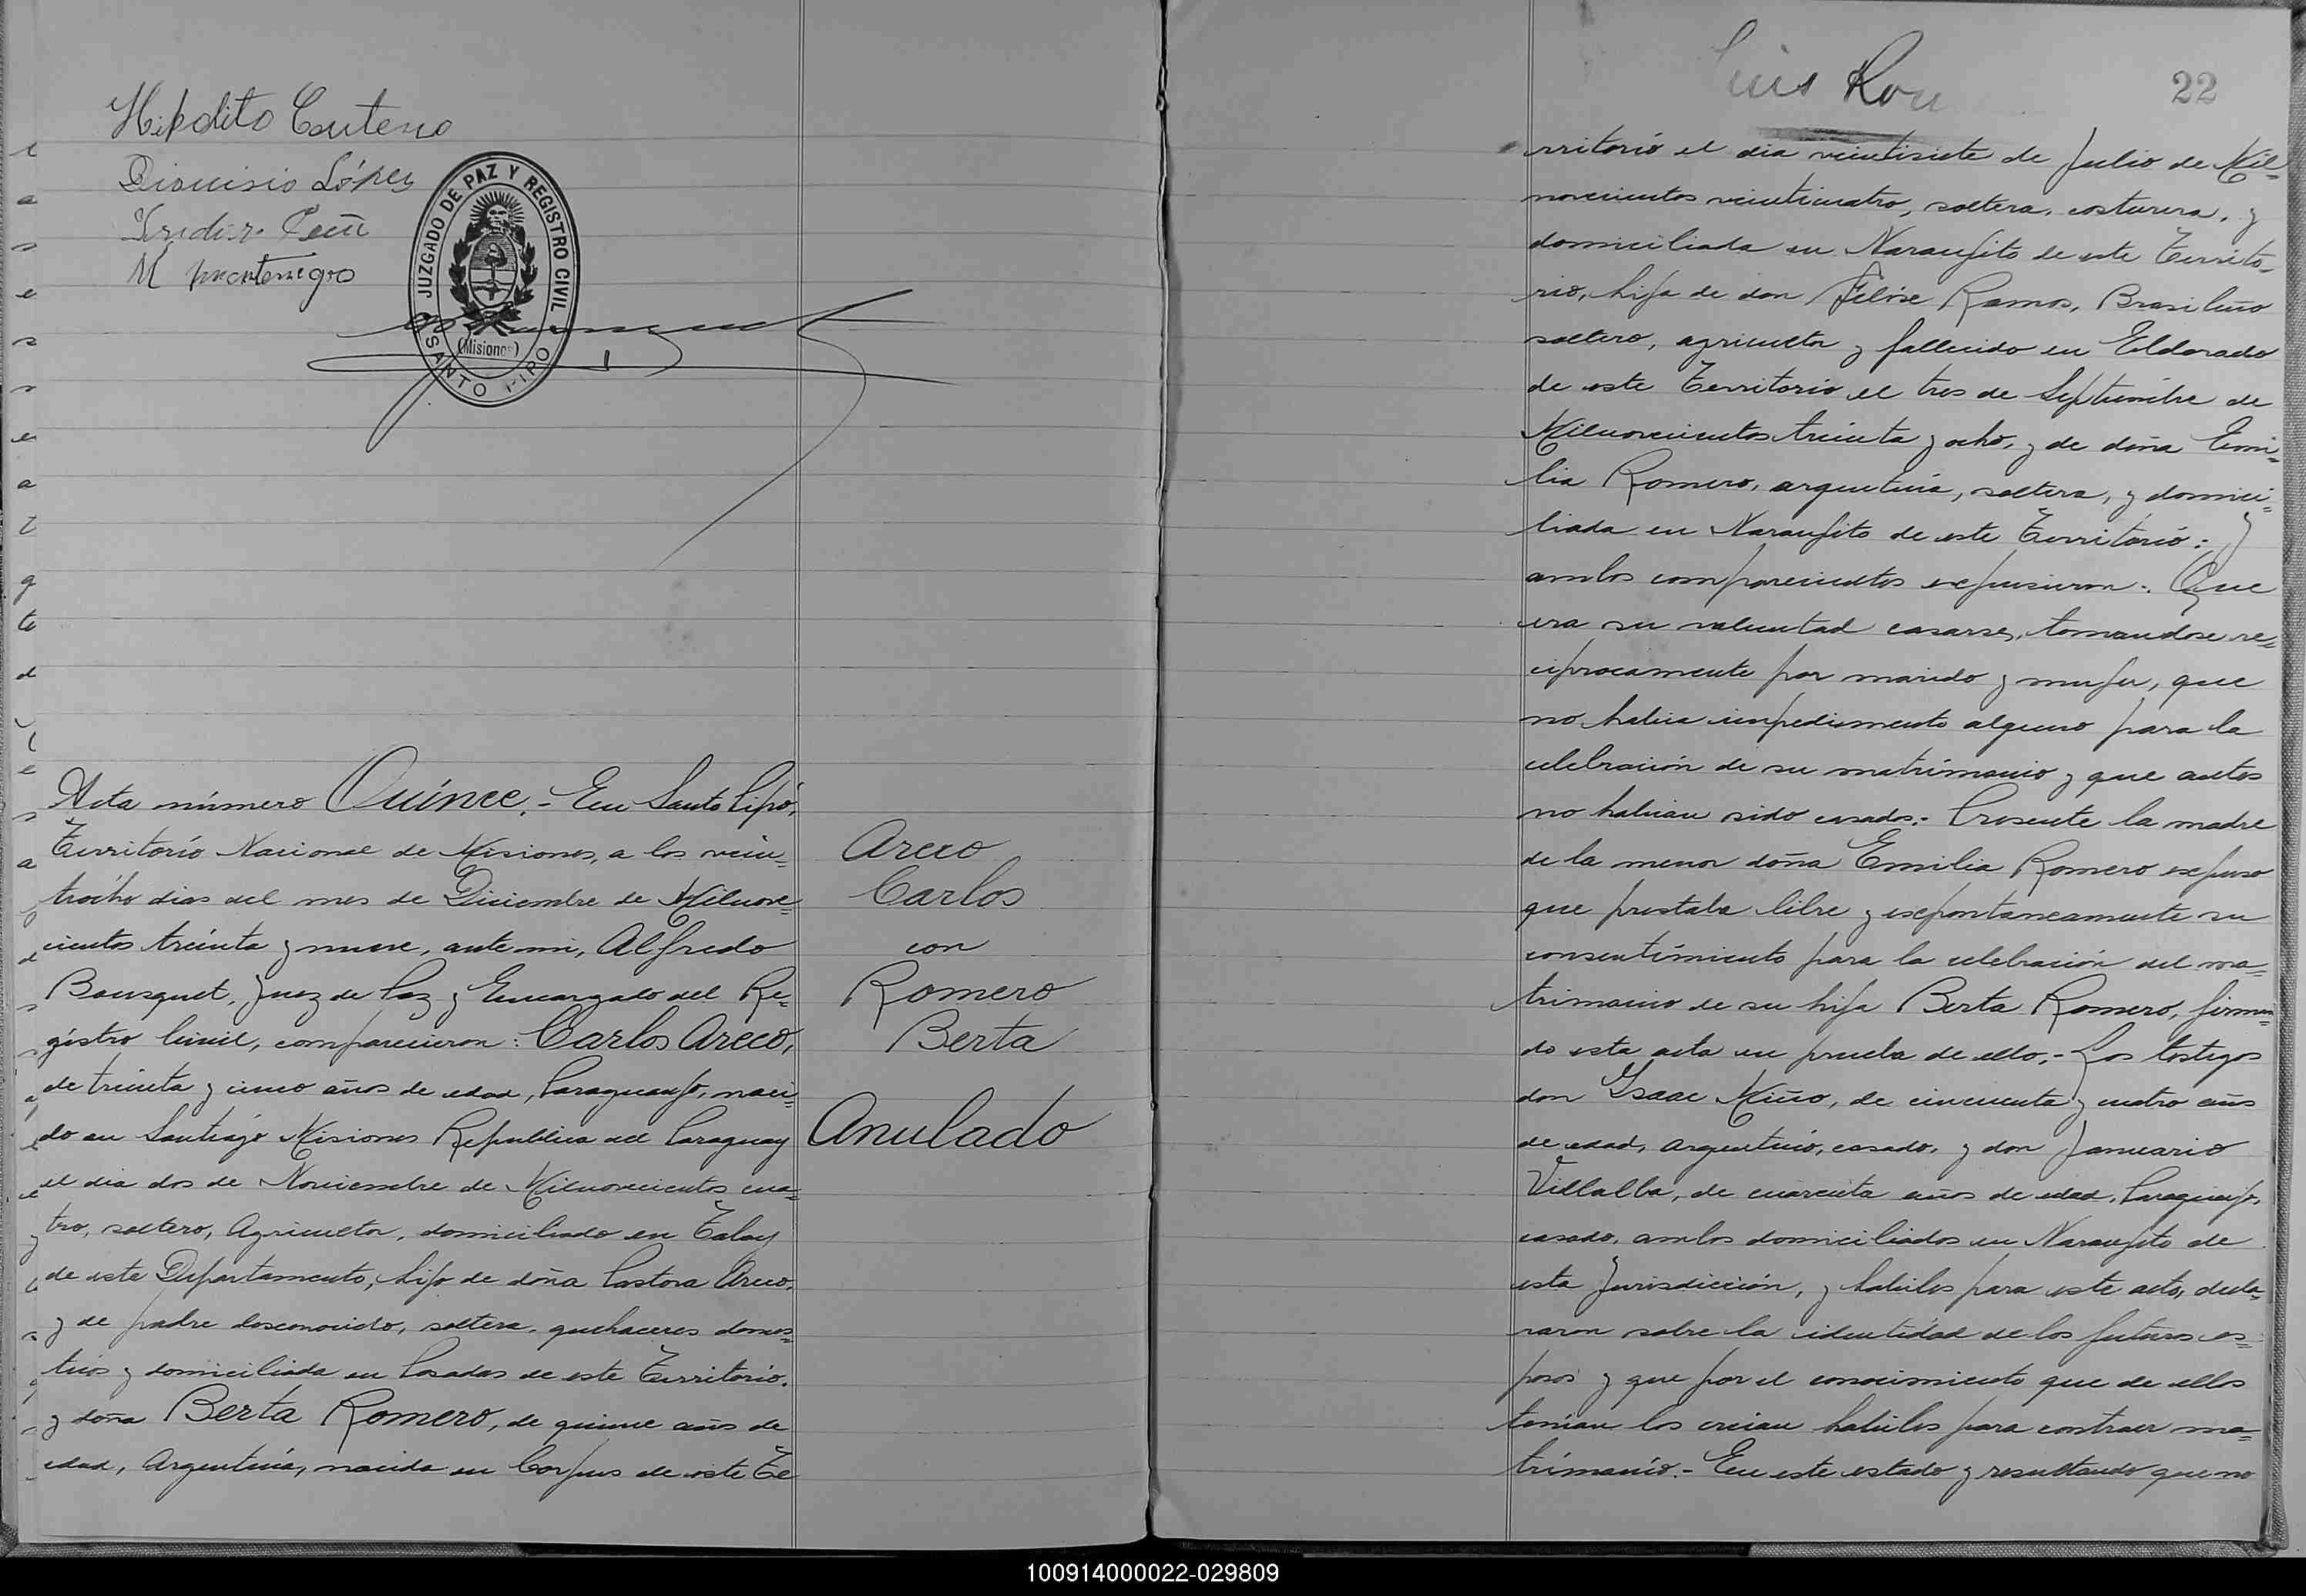 Hipolito Centeno
Dionisio López
M Montenegro
JUZGADO DE PAZ Y REGISTRO CIVIL
(Misiones)
SANTO PIPO
Acta número Quince.- En Santo Pipó,
Territorio Nacional de Misiones, a los vein=
tiocho dias del mes de Diciembre de Milnove=
cientos treinta y nueve, ante mi, Alfredo
Bousquet, Juez de Paz y Encargado del Re=
gistro Civil, comparecieron: Carlos Areco,
de treinta y cinco años de edad, Paraguayo, naci=
do en Santiago Misiones Republica del Paraguay
el dia dos de Noviembre de Milnovecientos cua=
tro, soltero, Agricultor, domiciliado en Talay
de este Departamento, hijo de doña Pastora Areco,
y de padre desconocido, soltera, quehaceres domes=
ticos y domiciliada en Posadas de este Territorio.
y doña Berta Romero, de quince años de
edad, Argentina, nacida en Corpus de este Te
Areco
Carlos
con
Romero
Berta
Anulado
Luis Rou
22
rritorio el dia veintisiete de Julio de Mil=
novecientos veinticuatro, soltera, costurera, y
domiciliada en Naranjito de este Territo=
rio, hija de don Felise Ramos, Brasileño
soltero, agricultor y fallecido en Eldorado
de este Territorio el tres de Septiembre de
Milnovecientos treinta y ocho, y de doña Emi=
lia Romero, argentina, soltera, y domici=
liada en Naranjito de este Territorio: y
ambos comparecientes expusieron: Que
era su voluntad casarse, tomandose re=
ciprocamente por marido y mujer, que
no habia impedimento alguno para la
celebración de su matrimonio y que antes
no habian sido casados.- Presente la madre
de la menor doña Emilia Romero expuso
que prestaba libre y expontaneamente su
consentimiento para la celebración del ma=
trimonio de su hija Berta Romero, firman=
do esta acta en prueba de ello.- Los testigos
don Isaac Miño, de cincuenta y cuatro años
de edad, argentino, casado, y don Januario
Villalba, de cuarenta años de edad, Paraguayo,
casado, ambos domiciliados en Naranjito de
esta Jurisdicción, y habiles para este acto, decla=
raron sobre la identidad de los futuros es=
posos y que por el conocimiento que de ellos
tenian los creian habiles para contraer ma=
trimonio.- En este estado y resultando que no
100914000022-029809